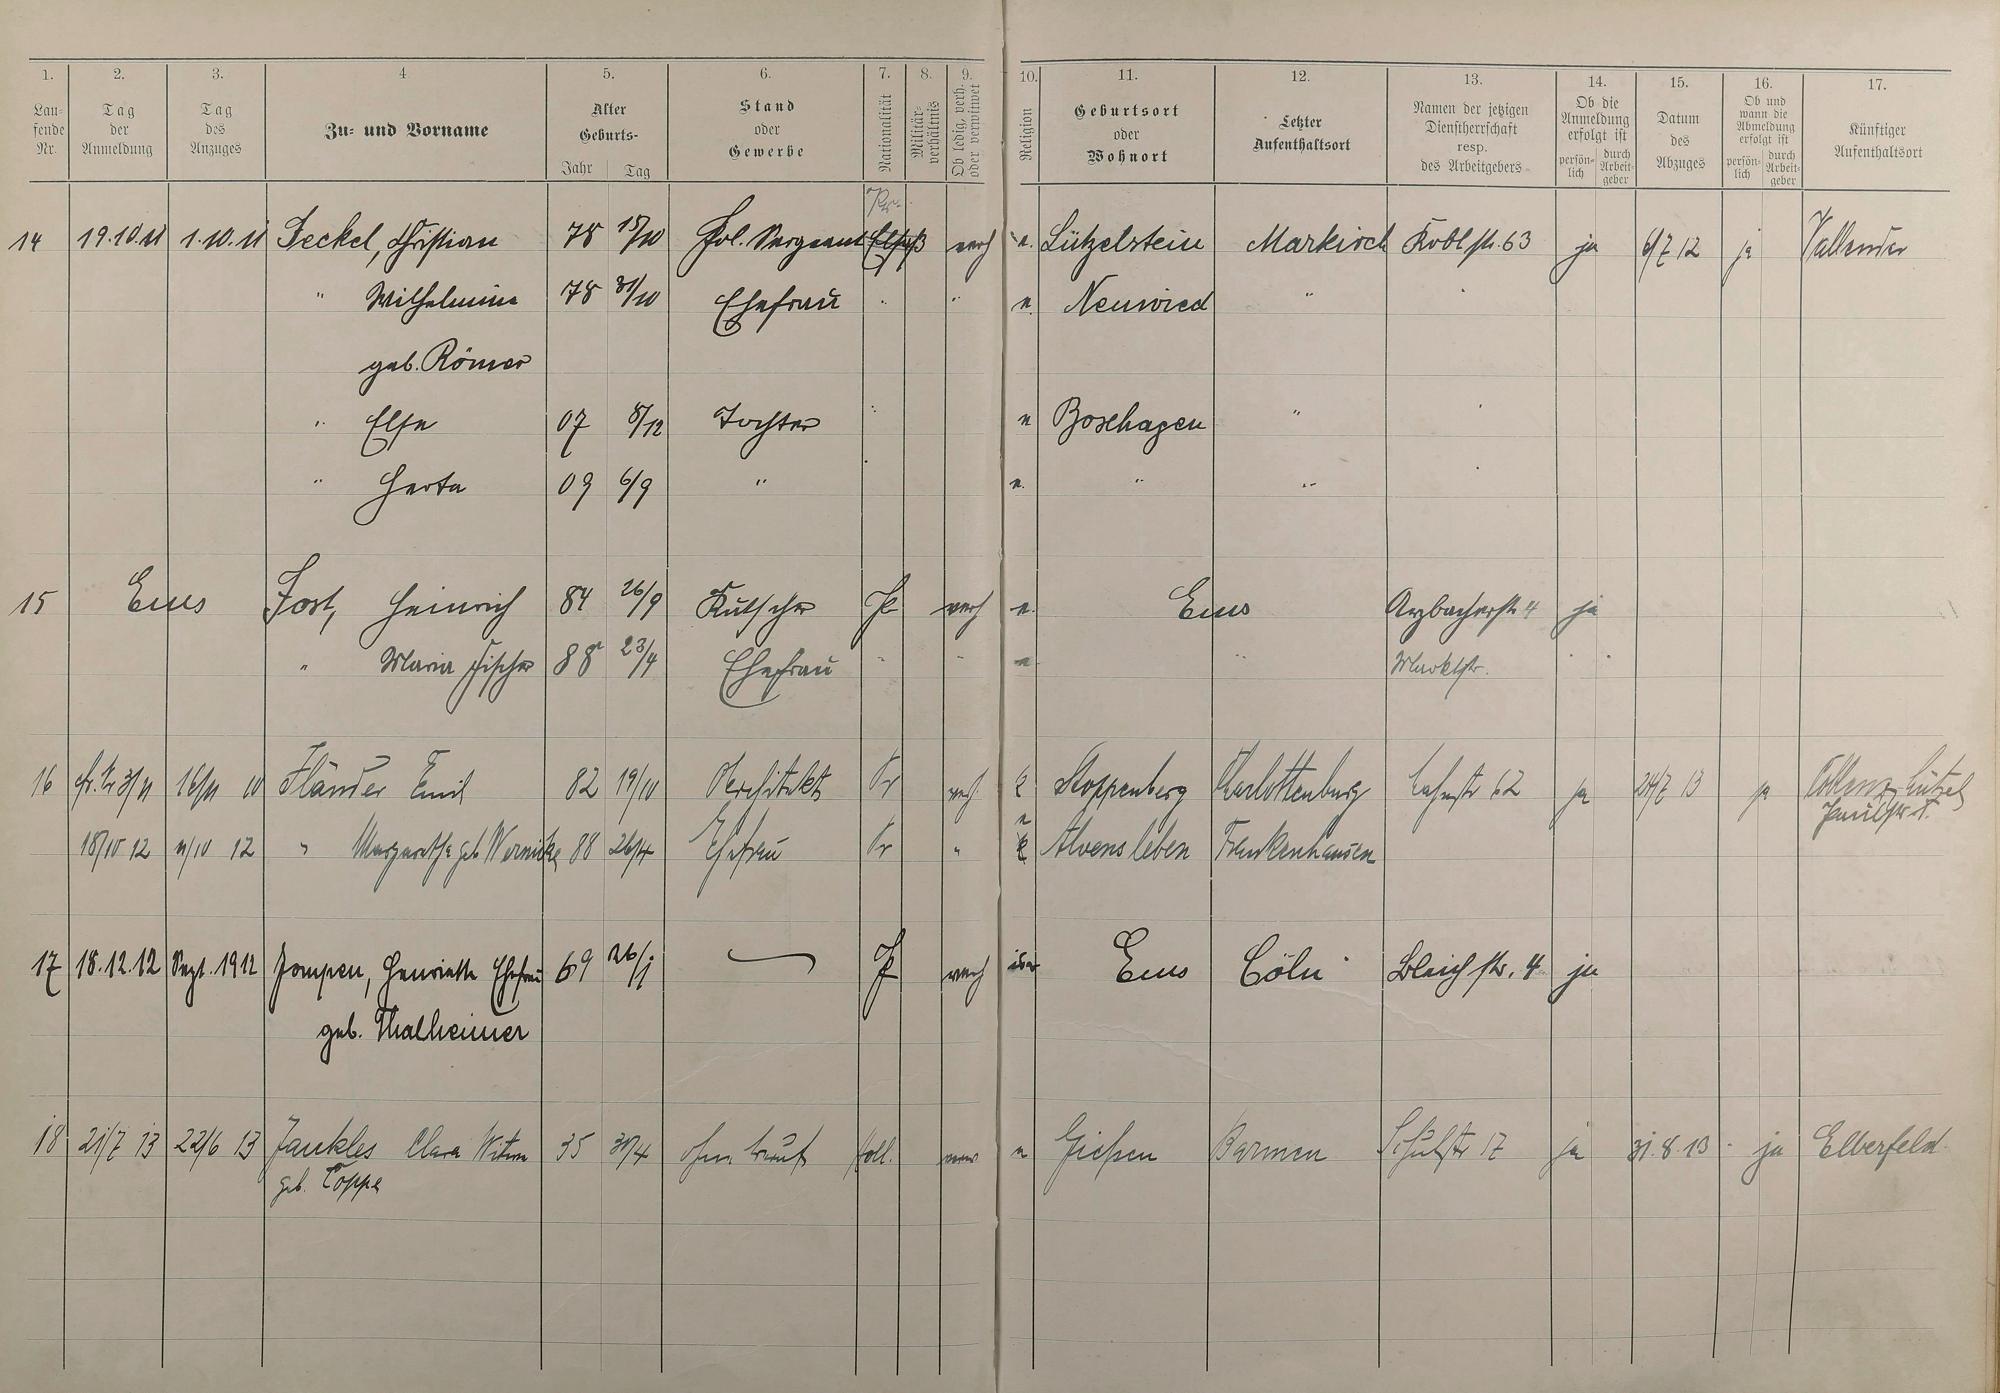 1. 2. 3. 4 5. 6. 7. 8. 9. 10. 11. 12. 13. 14. 15. 16. 17.
Laufende Nr.
Tag der Anmeldung
Tag des Anzuges
Zu- und Vorname
Alter Geburts- Jahr Tag
Stand oder Gewerbe
Nationalität
Militär-verhältnis
Ob ledig, verh. oder verwitwet
Religion
Geburtsort oder Wohnort
Letzter Aufenthaltsort
Namen der jetzigen Dienstherrschaft resp. des Arbeitgebers
Ob die Anmeldung erfolgt ist persön-lich durch Arbeit-geber
Datum des Abzuges
Ob und wann die Abmeldung erfolgt ist persön-lich durch Arbeit-geber
Künftiger Aufenthaltsort
14 19.10.11 1.10.11 Jeckel, Christian 78 15/10 Pol. Sergeant verh e. Lützelstein Markirch Koblstr. 63 ja 6/7 12 ja Vallendar
" Wilhelmine 78 31/10 Ehefrau " " e. Neuwied "
geb. Römer
" Else 07 8/12 Tochter " e Boxhagen "
" Herta 09 6/9 " e. " "
15 Ems Jost, Heinrich 84 26/9 Kutscher Pr verh e. Ems Arzbacherstr 4 ja
" Maria Fischer 88 23/4 Ehefrau " " e " Marktstr.
16 16/11 10 Fländer Emil 82 19/10 Architekt Pr verh k Stoppenberg Charlottenburg Lahnstr 62 ja 24/7 13 ja Coblenz-Lützel
18/10 12 11/10 12 " Margarethe geb Wernicke 88 26/4 Ehefrau Pr " e Alvensleben Frankenhausen
17 18.12.12 Sept. 1912 Jompen, Henriette Ehefrau 69 26/1 Pr verh isr Ems Cöln Bleichstr. 4 ja
geb. Thalheimer
18 21/7 13 22/6 13 Jankles Clara Witwe 35 30/4 ohne Beruf Holl. e Gießen Barmen Schulstr 17 ja 31.8.13 ja Elberfeld
geb. Coppe